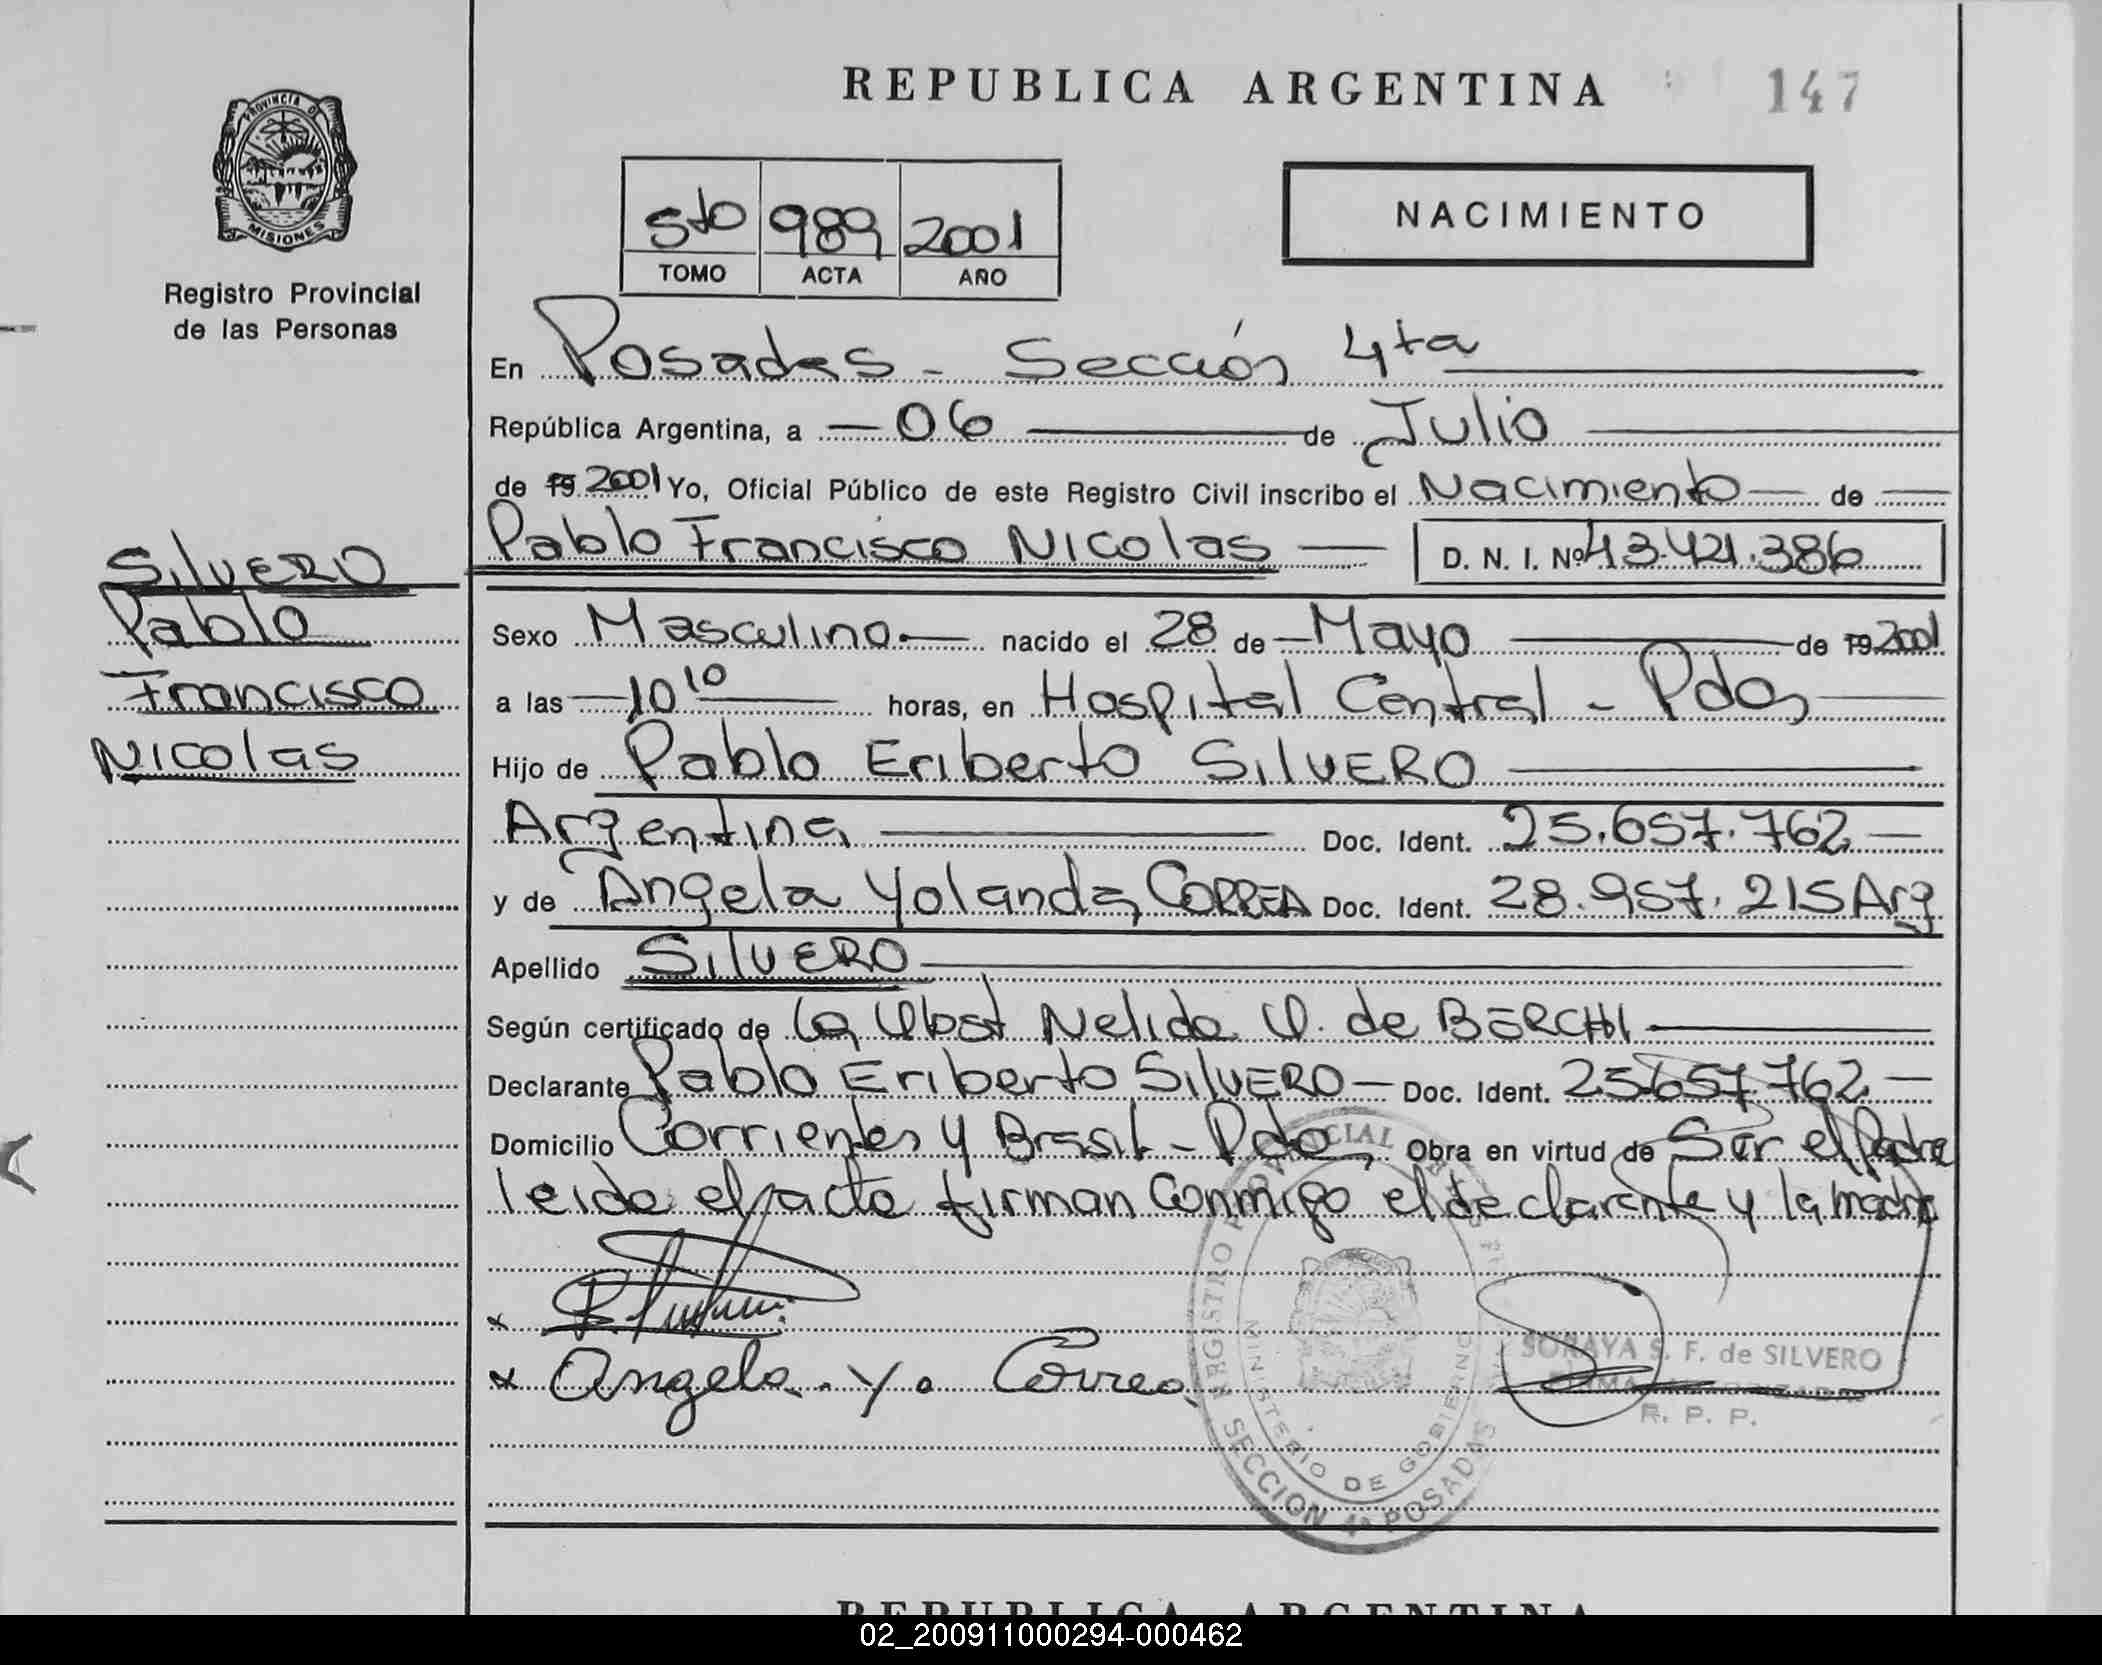 REPUBLICA ARGENTINA
147
PROVINCIA DE
MISIONES
Registro Provincial
de las Personas
5to 989 2001
TOMO ACTA AÑO
NACIMIENTO
En Posadas - Sección 4ta
República Argentina, a 06 de Julio
de 19 2001 Yo, Oficial Público de este Registro Civil inscribo el Nacimiento de
Pablo Francisco Nicolas D. N. I. Nº 43.421.386
Silvero
Pablo
Francisco
Nicolas
Sexo Masculino nacido el 28 de Mayo de 19 2001
a las 10 10 horas, en Hospital Central - Pdas
Hijo de Pablo Eriberto SilvERO
Argentina Doc. Ident. 25.657.762
y de Angela Yolanda CORREA Doc. Ident. 28.957.215 Arg
Apellido SilvERO
Según certificado de la Obst Nelida de BERCHI
Declarante Pablo Eriberto SilvERO Doc. Ident. 25.657.762
Domicilio Corrientes y Brasil - Pdas Obra en virtud de Ser el Padre
leida el acta firman Conmigo el declarante y la madre
x
x Angela Y. Correa
REGISTRO PROVINCIAL
MINISTERIO DE GOBIERNO
SECCION 4ª POSADAS
SORAYA S. F. de SILVERO
FIRMA AUTORIZADA
R. P. P.
REPUBLICA ARGENTINA
02_200911000294-000462